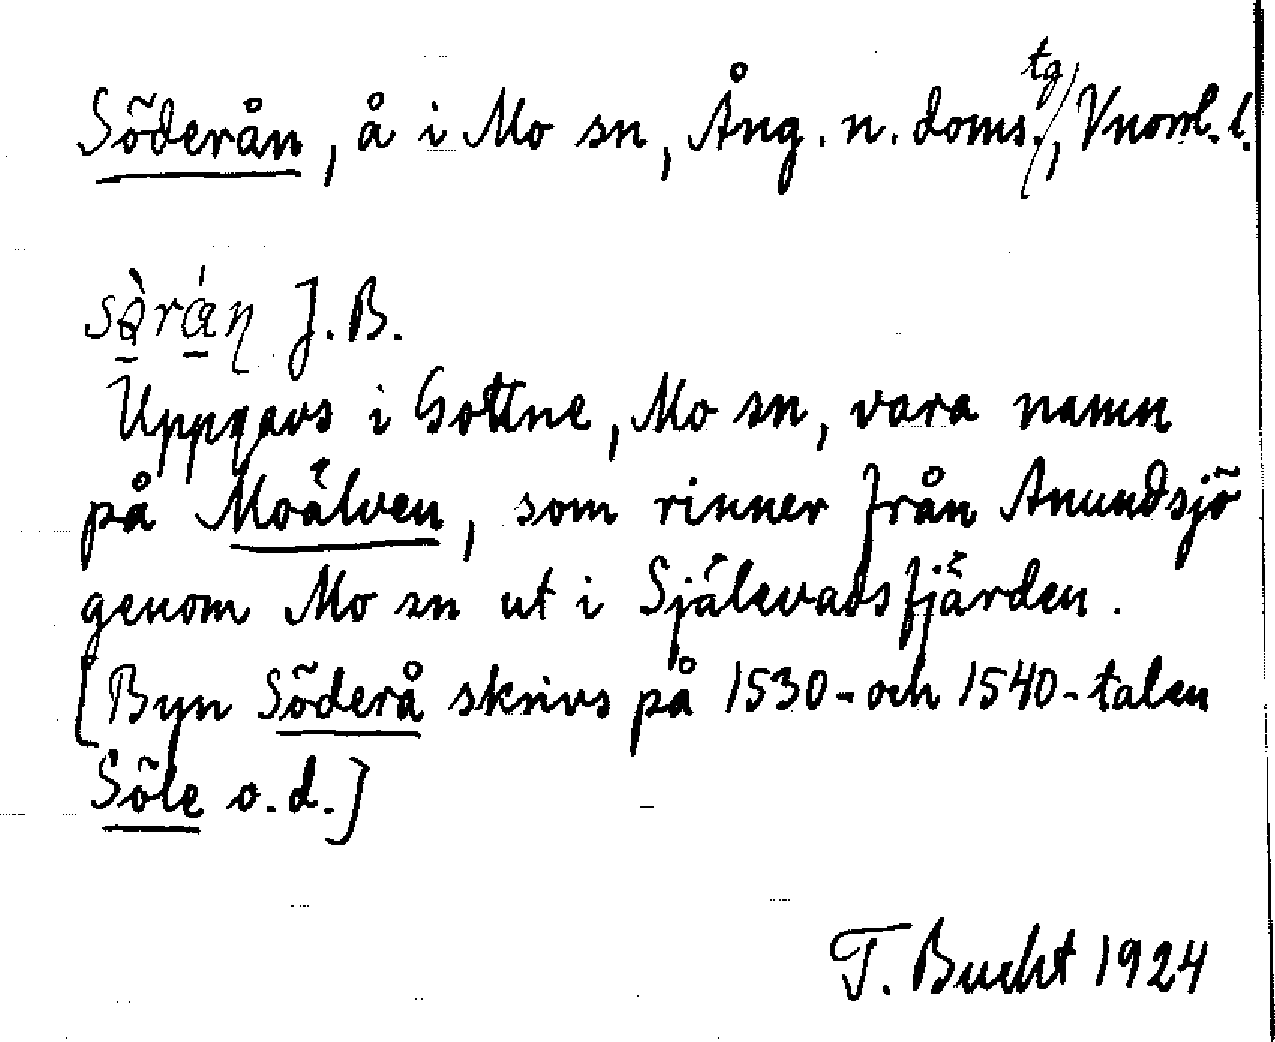 Söderån, å i Mo sn, Ång. n. doms.tg, Vnorrl. l.
J. B.
Uppgavs i Gottne, Mo sn, vara namn
på Moälven, som rinner från Anundsjö
genom Mo sn ut i Själevadsfjärden.
[Byn Söderå skrivs på 1530- och 1540-talen
Söle o.d.]
T. Bucht 1924